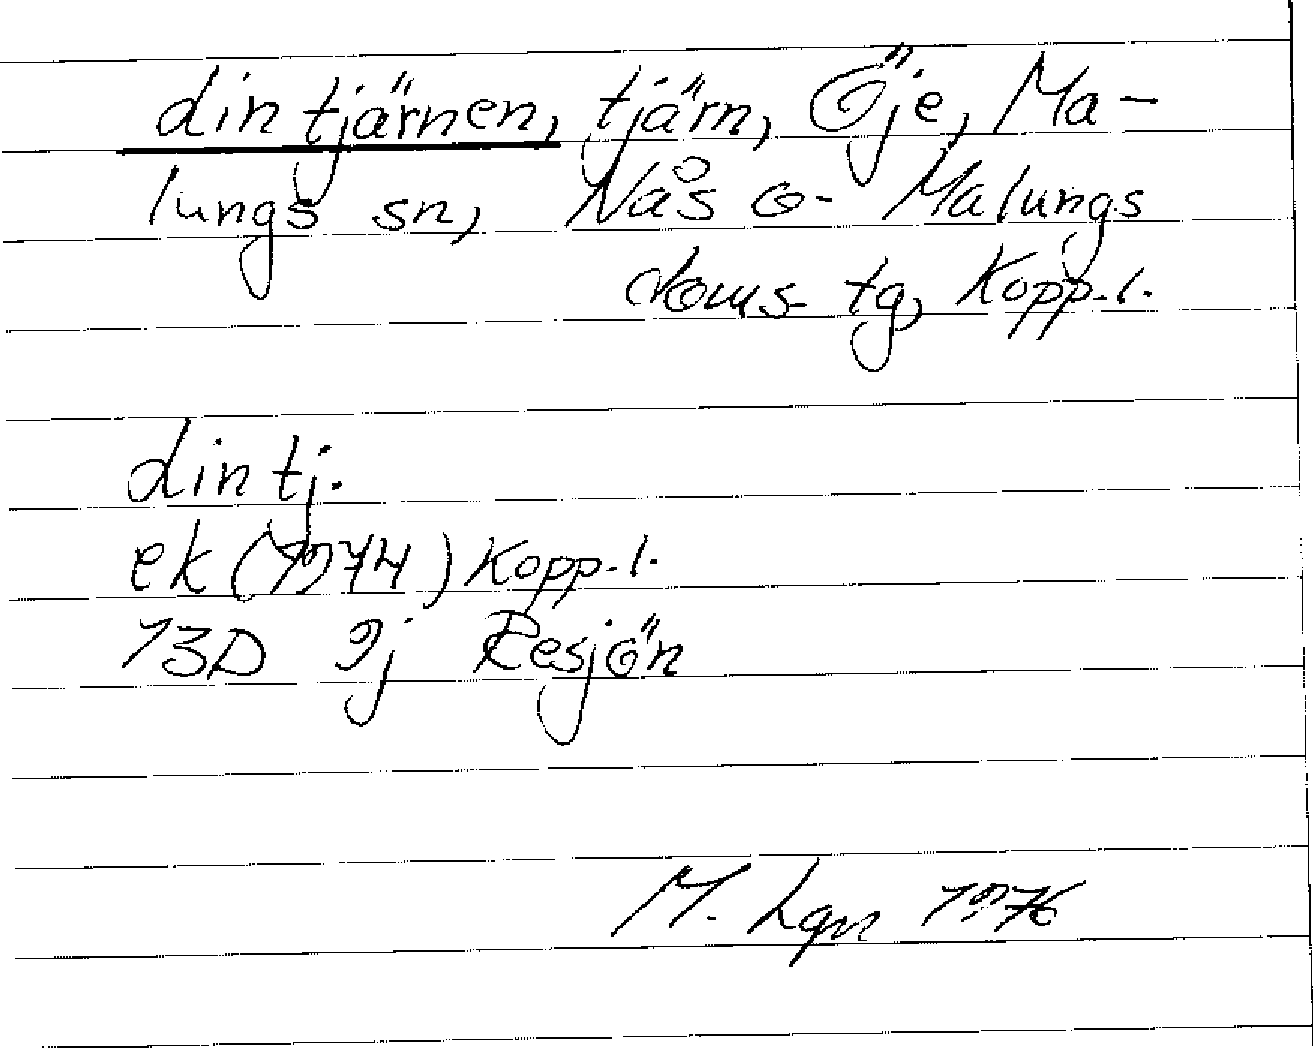 dintjärnen, tjärn, Öje, Ma-
lungs sn, Nås o. Malungs
doms. tg, Kopp.l.
dintj.
ek (1974) Kopp.l.
13D 9j Resjön
M. Lgn 1976